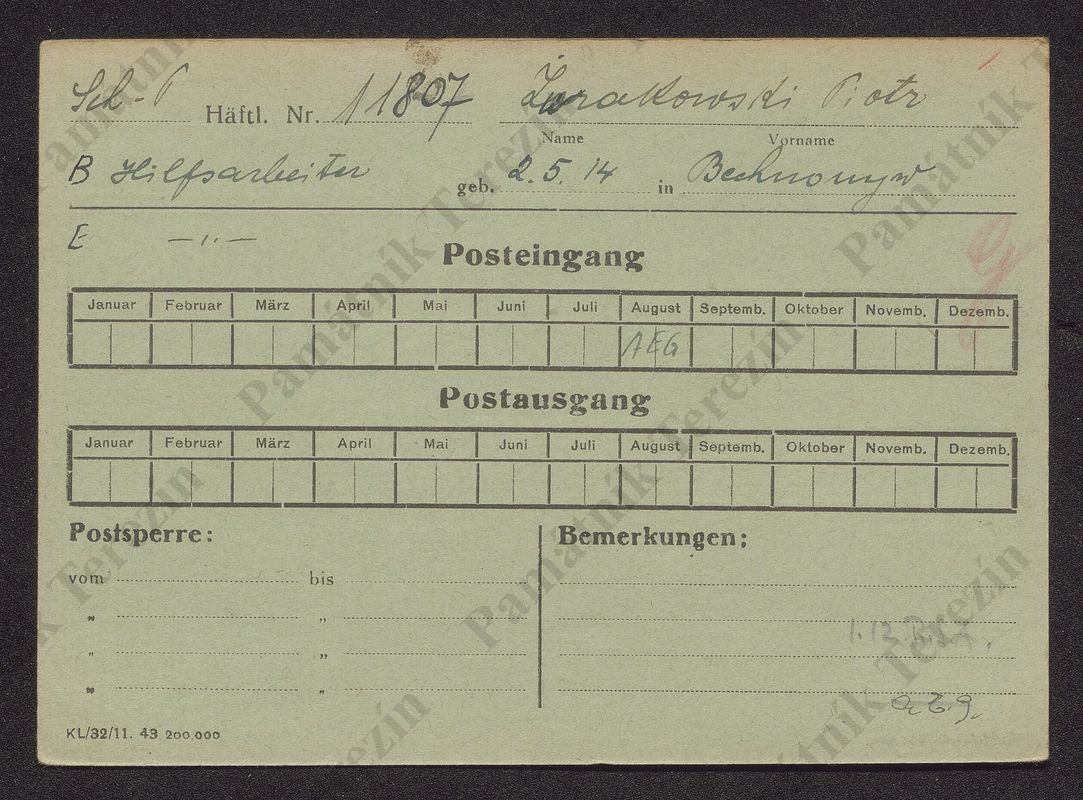 Sch-P Häftl. Nr. 11807 Żurakowski Piotr
Name Vorname
B Hilfsarbeiter geb. 2.5.14 in
E —"—
Posteingang
Januar Februar März April Mai Juni Juli August Septemb. Oktober Novemb. Dezemb.
AEG
Postausgang
Januar Februar März April Mai Juni Juli August Septemb. Oktober Novemb. Dezemb.
Postsperre: Bemerkungen:
vom bis
" "
" "
" "
1.12.
KL/32/11. 43 200.000
Památník Terezín